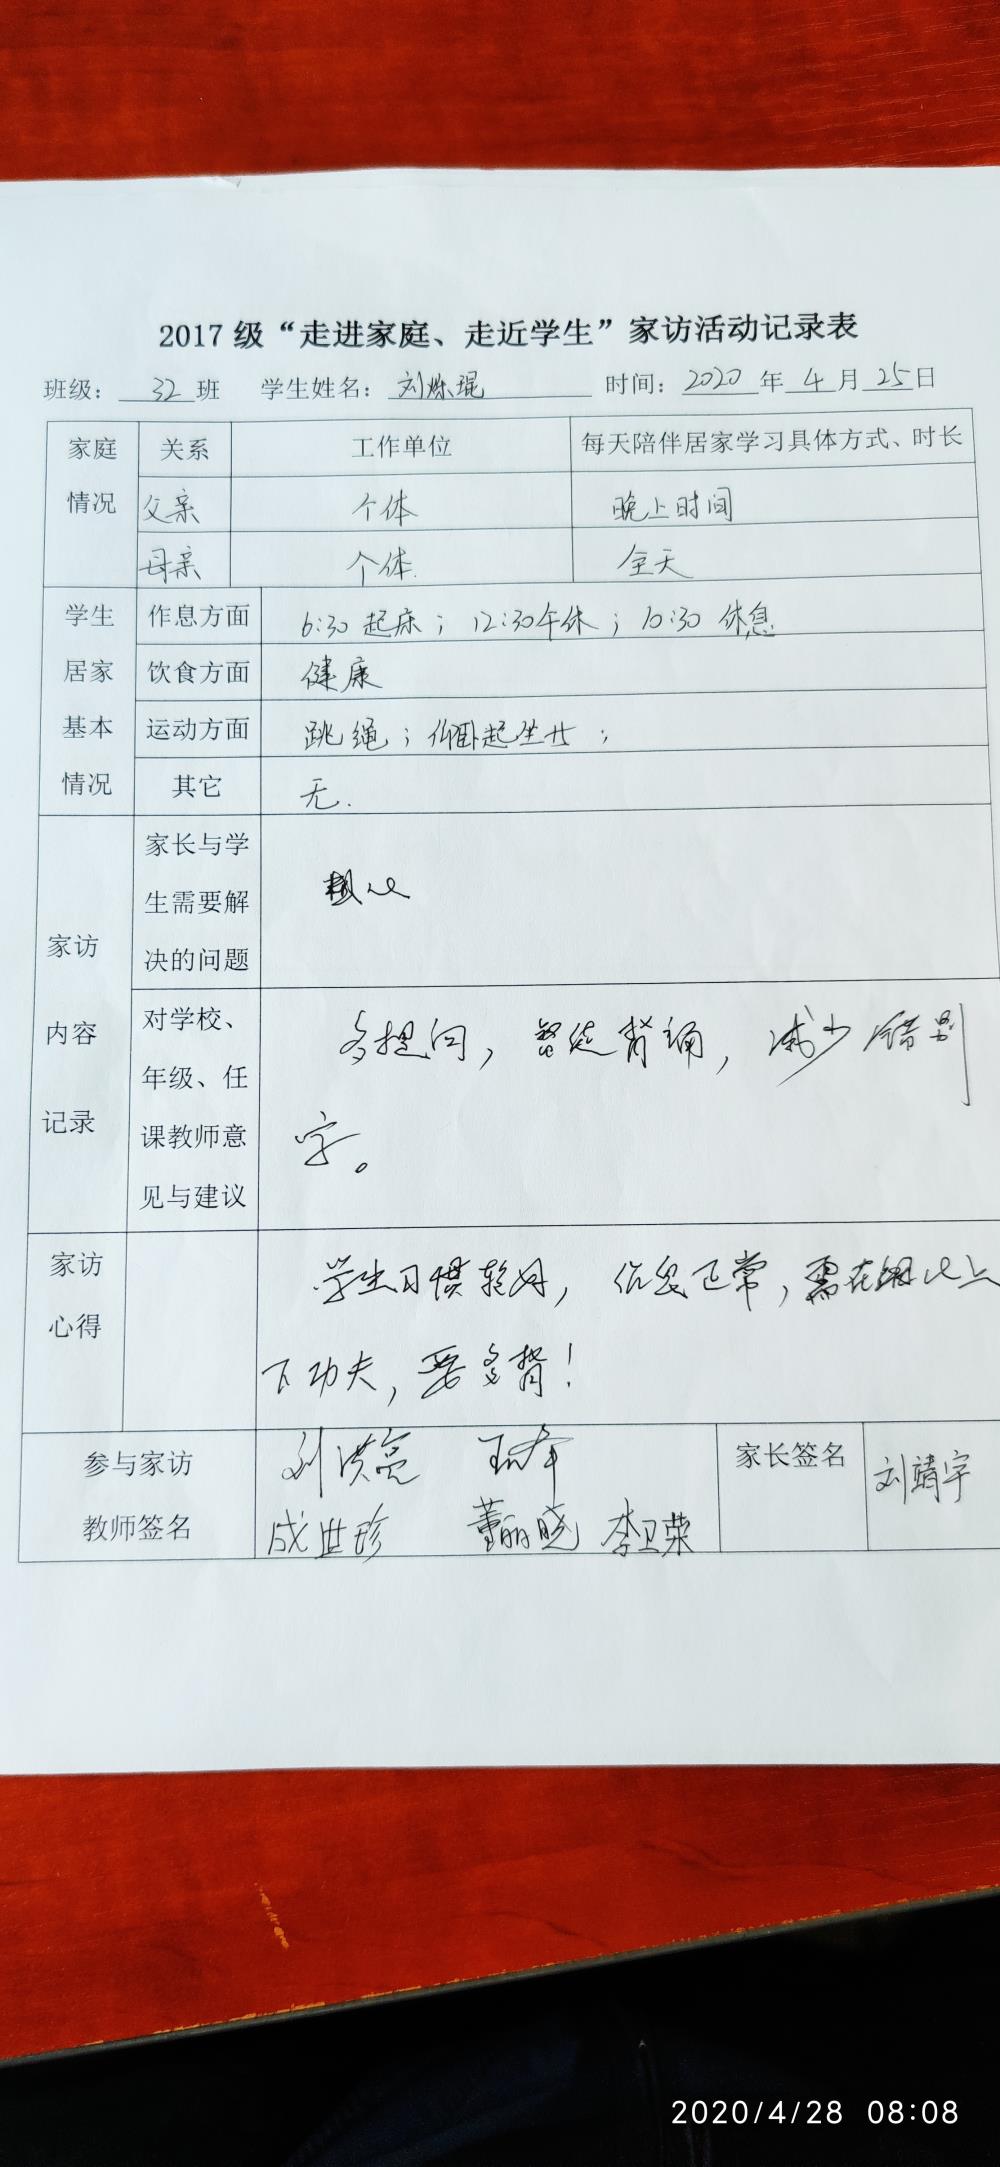 2017 级“走进家庭、走近学生”家访活动记录表
班级： 32 班 学生姓名： 刘烁琨 时间：2020 年 4 月 25 日
家庭情况 关系 工作单位 每天陪伴居家学习具体方式、时长
父亲 个体 晚上时间
母亲 个体. 全天
学生居家基本情况 作息方面 6:30 起床；12:30午休；10:30 休息
饮食方面 健康
运动方面 跳绳；仰卧起坐；
其它 无.
家访内容记录
家长与学生需要解决的问题 粗心
对学校、年级、任课教师意见与建议
多提问，督促背诵，减少错别
字。
家访心得
学生习惯较好，作息正常，需在细心上
下功夫，要多背！
参与家访教师签名 刘洪亮
成世珍 董丽晓 李卫荣
家长签名 刘靖宇
2020/4/28 08:08